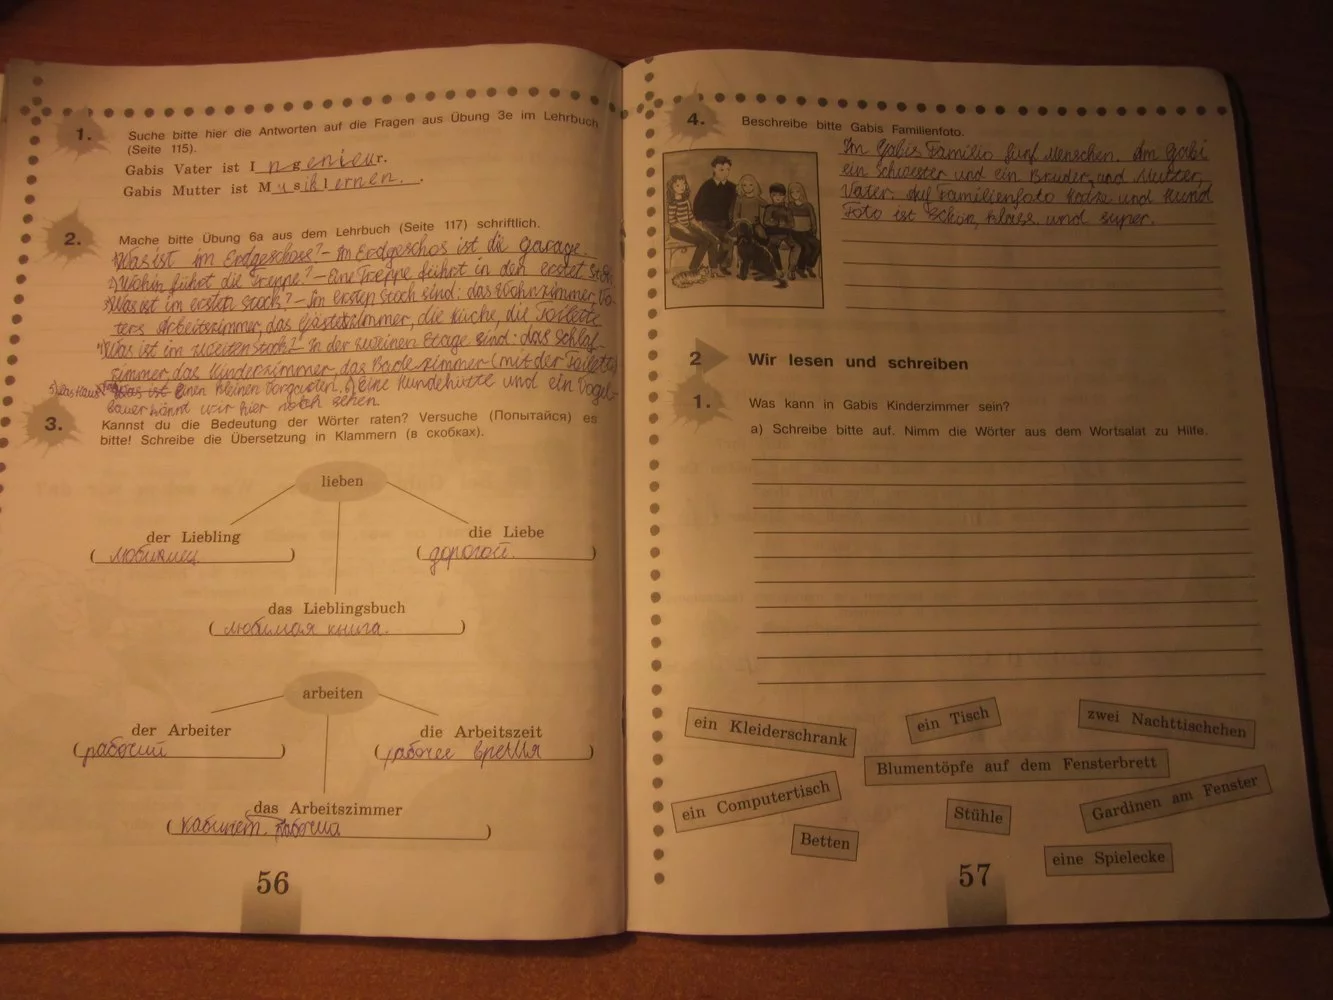 1.
Suche bitte hier die Antworten auf die Fragen aus Übung 3e im Lehrbuch
(Seite 115).
Gabis Vater ist Ingenieur.
Gabis Mutter ist Musiklernen.
2.
Mache bitte Übung 6a aus dem Lehrbuch (Seite 117) schriftlich.
Was ist im Erdgeschoss? – Im Erdgeschos ist die garage.
2) Wohin führt die Treppe? – Eine Treppe führt in den erstet
Was ist im ersten stock? – Im ersten Stoch sind: das Wohnzimmer,
ters Arbeitszimmer, das Gästetszimmer, die Küche, die Toilette
Was ist im zweiten Stock? In der zweinen Etage sind: das Schlaf-
zimmer das Kinderzimmer, das Bade zimmer (mit der Toilette)
5) Das Haus einen kleinen Vorgarten. eine Hundehütte und ein Vogel-
bauer könnt wir hier noch sehen.
3.
Kannst du die Bedeutung der Wörter raten? Versuche (Попытайся) es
bitte! Schreibe die Übersetzung in Klammern (в скобках).
lieben
der Liebling
die Liebe
(любимец)
(дорогой.)
das Lieblingsbuch
(любимая книга.)
arbeiten
der Arbeiter
die Arbeitszeit
(рабочий)
(рабочее время)
das Arbeitszimmer
(кабинет.)
56
4.
Beschreibe bitte Gabis Familienfoto.
Im Gabis Familie fünf Menschen. Am Gabi
ein Schwester und ein Bruder, und Mutter,
Vater. Auf Familienfoto Katze und Hund
Foto ist Schön, klass und super.
2
Wir lesen und schreiben
1.
Was kann in Gabis Kinderzimmer sein?
a) Schreibe bitte auf. Nimm die Wörter aus dem Wortsalat zu Hilfe.
ein Kleiderschrank
ein Tisch
zwei Nachttischchen
Blumentöpfe auf dem Fensterbrett
ein Computertisch
Stühle
Gardinen am Fenster
Betten
eine Spielecke
57